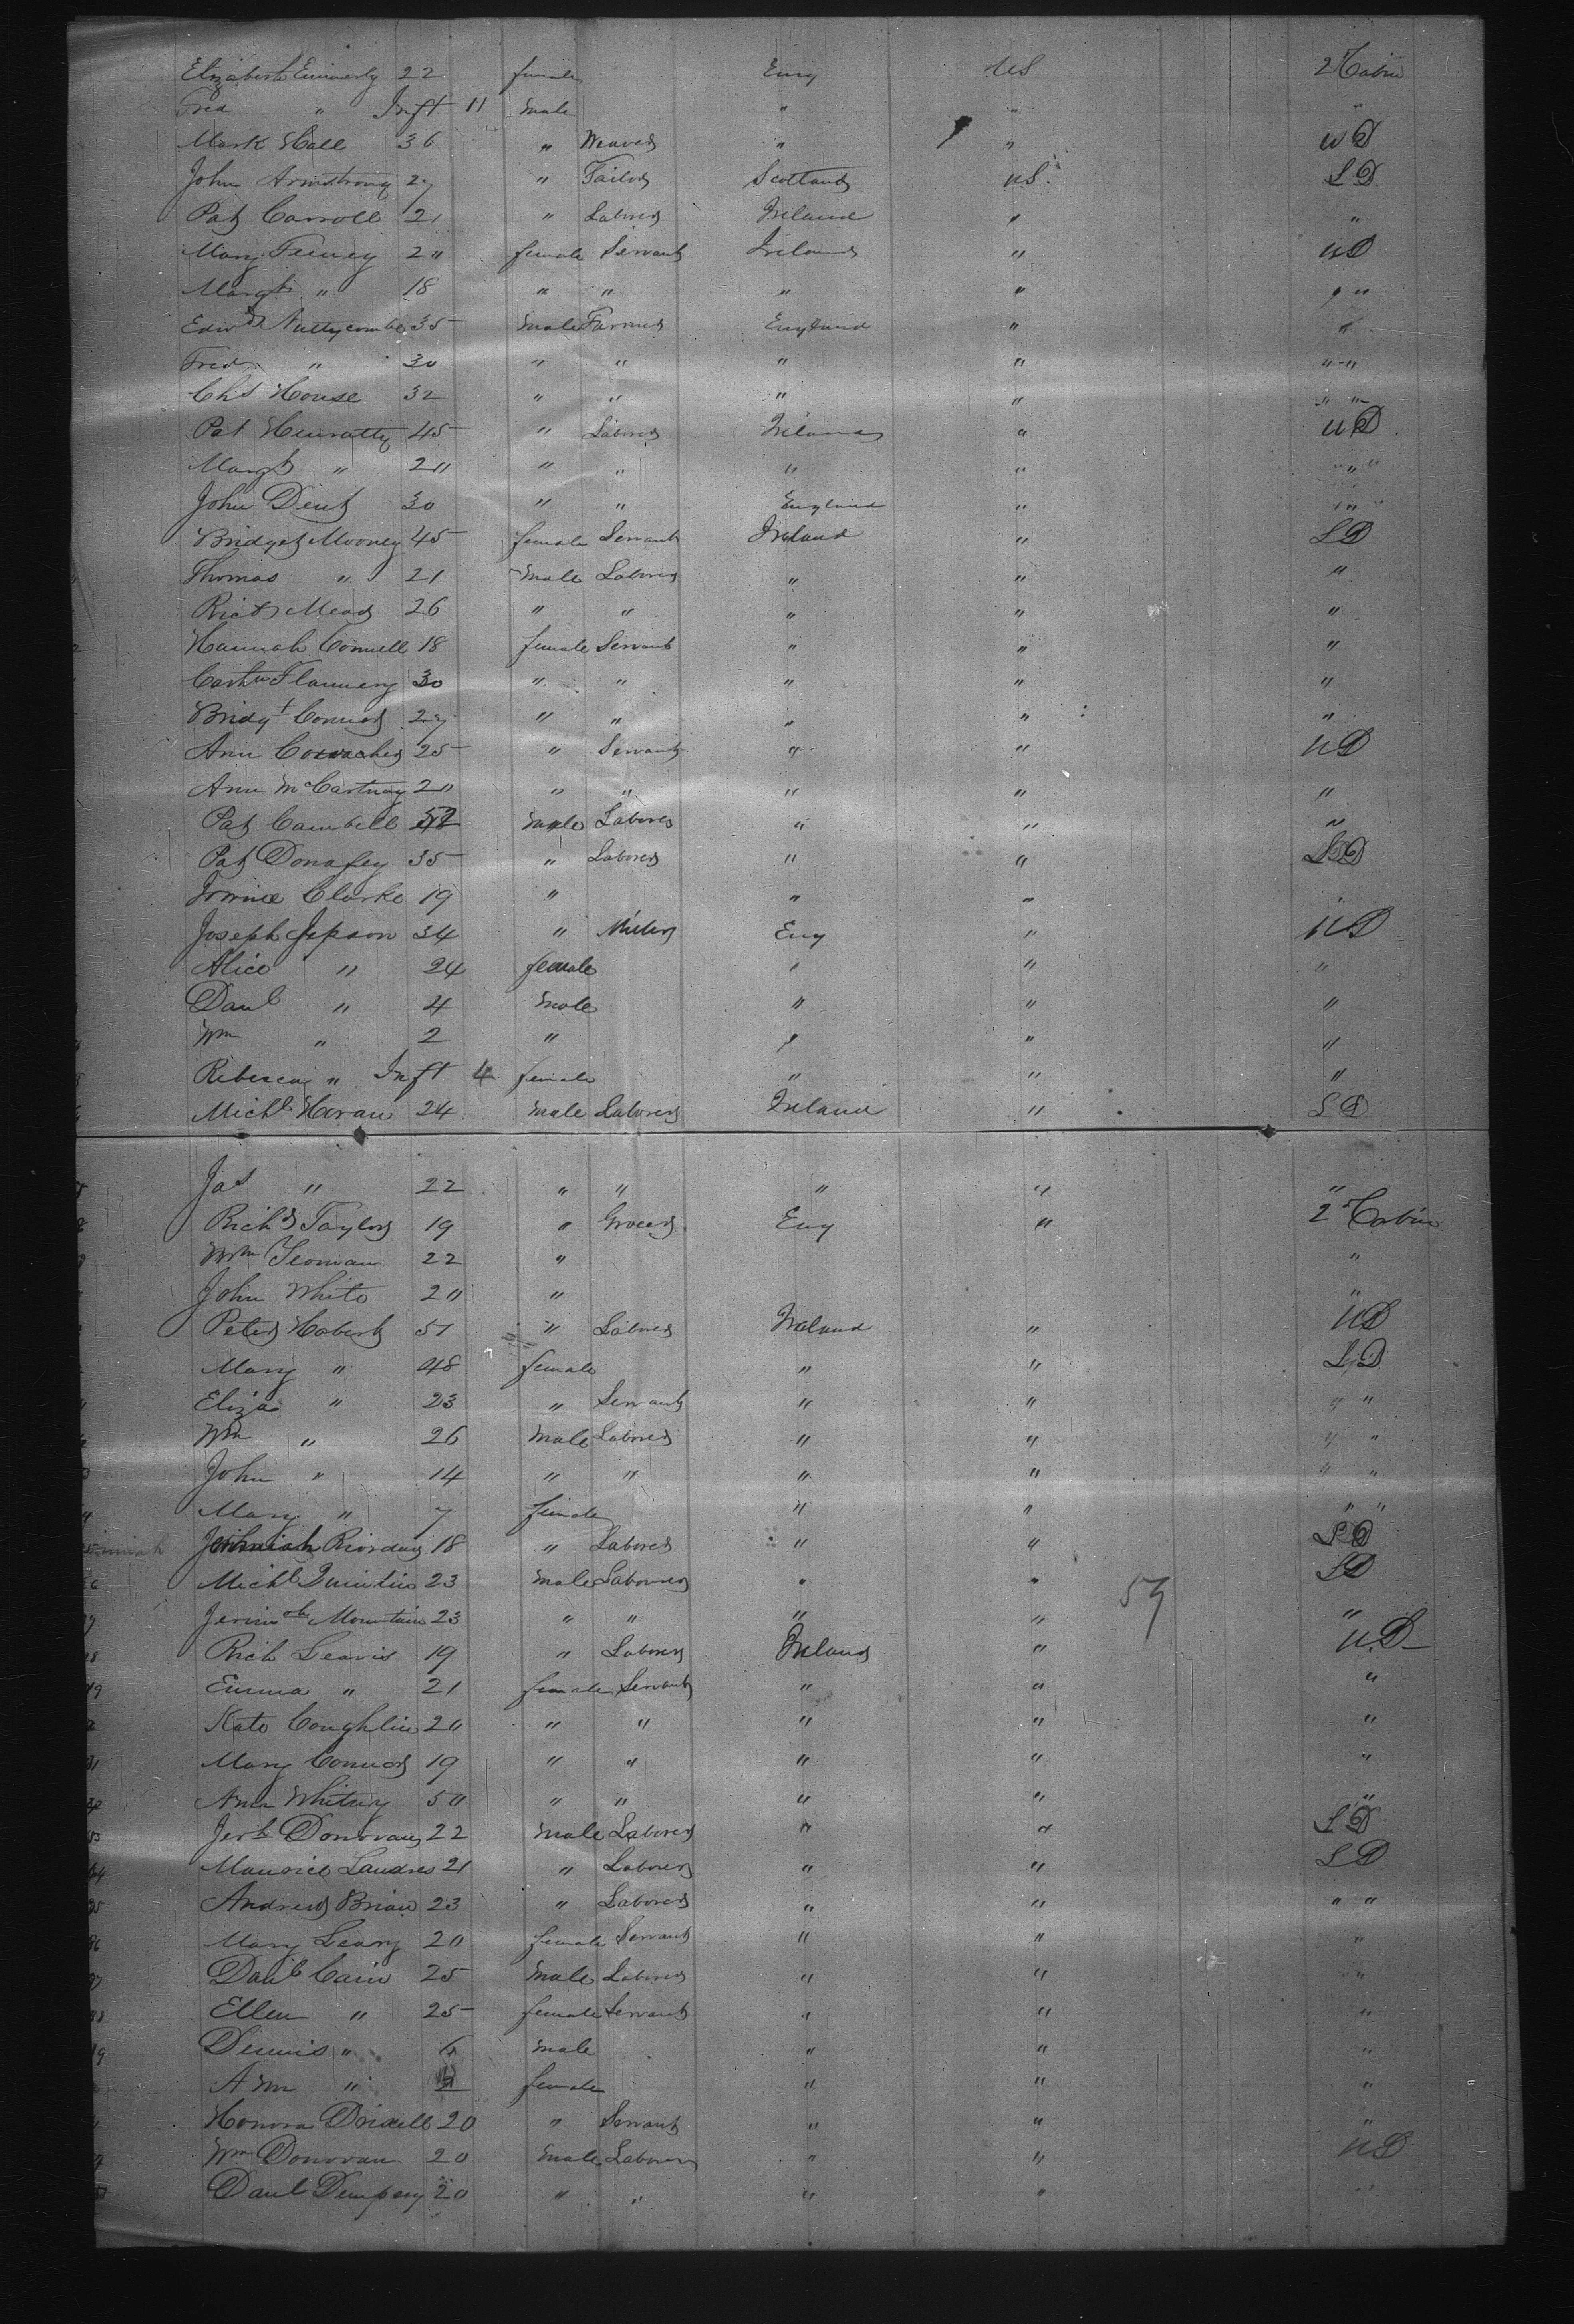 Elizabeth Emmerly 22 female Eng US 2 Cabin
Fred " Inft 11 male " " "
Mark Hall 36 " Weaver " " UD
John Armstrong 27 " Tailor Scotland US. LD
Pat Carroll 21 " Laborer Ireland " "
Mary Feeney 20 female Servant Ireland " UD
Margt " 18 " " " " " "
Edwd Nuttycombe 35 male Farmer England " "
Fred " 30 " " " " " "
Chs House 32 " " " " " "
Pat Henratty 45 " Laborer Ireland " UD
Margt " 20 " " " " " "
John Dent 30 " " England " " "
Bridget Mooney 45 female Servant Ireland " LD
Thomas " 21 male Laborer " " "
Richd Mead 26 " " " " "
Hannah Connell 18 female Servant " " "
Cathn Flannery 30 " " " " "
Bridgt Connor 27 " " " " "
Ann 25 " Servant " " UD
Ann McCartney 20 " " " " "
Pat Cambell male Laborer " " "
Pat Donafey 35 " Laborer " " LD
Clarke 19 " " " "
Joseph Jepson 34 " Miller Eng " UD
Alice " 24 female " " "
Danl " 4 male " " "
Wm " 2 " " " "
Rebecca " Inft 4 female " " "
Michl Horan 24 male Laborer Ireland " LD
Jas " 22 " " " " "
Richd Taylor 19 " Grocer Eng " 2 Cabin
Wm Yeoman 22 " "
John White 20 " "
Peter Hobert 51 " Laborer Ireland " UD
Mary " 48 female " " LD
Eliza " 23 " Servant " " " "
Wm " 26 male Laborer " " " "
John " 14 " " " " " "
Mary " 7 female " " " "
Jeremiah Riordan 18 " Laborer " " LD
Michl Quinlin 23 male Laborer " " LD
57
Jerimah Mountain 23 " " " " "
Rich Leavis 19 " Laborer Ireland " U.D
Emma " 21 female Servant " " "
Kate Coughlin 20 " " " " "
Mary Connor 19 " " " " "
Ann Whitney 50 " " " " "
Jerh Donovan 22 male Laborer " " LD
Maurice Landres 21 " Laborer " " LD
Andrew Brian 23 " Laborer " " " "
Mary Leary 20 female Servant " " "
Danl Cain 25 male Laborer " " "
Ellen " 25 female Servant " " "
Dennis " 6 male " " "
Ann " female " " "
Honora Driscell 20 " Servant " " "
Wm Donovan 20 male Laborer " " UD
Danl Dempsey 20 " " " " "